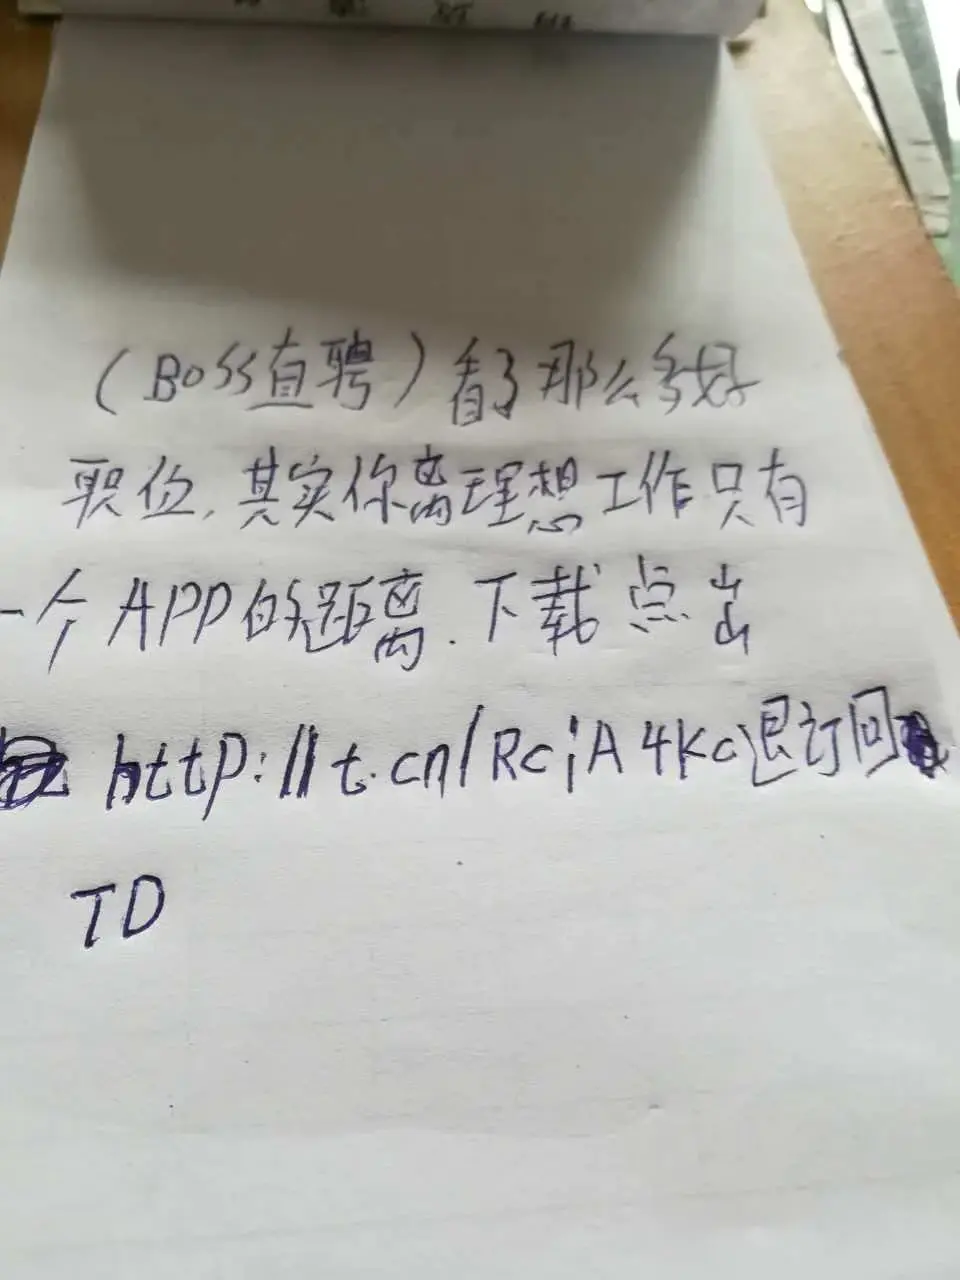 （Boss直聘）看了那么多好
职位,其实你离理想工作只有
一个APP的距离.下载点出
http://t.cn/RciA4Kc退订回
TD